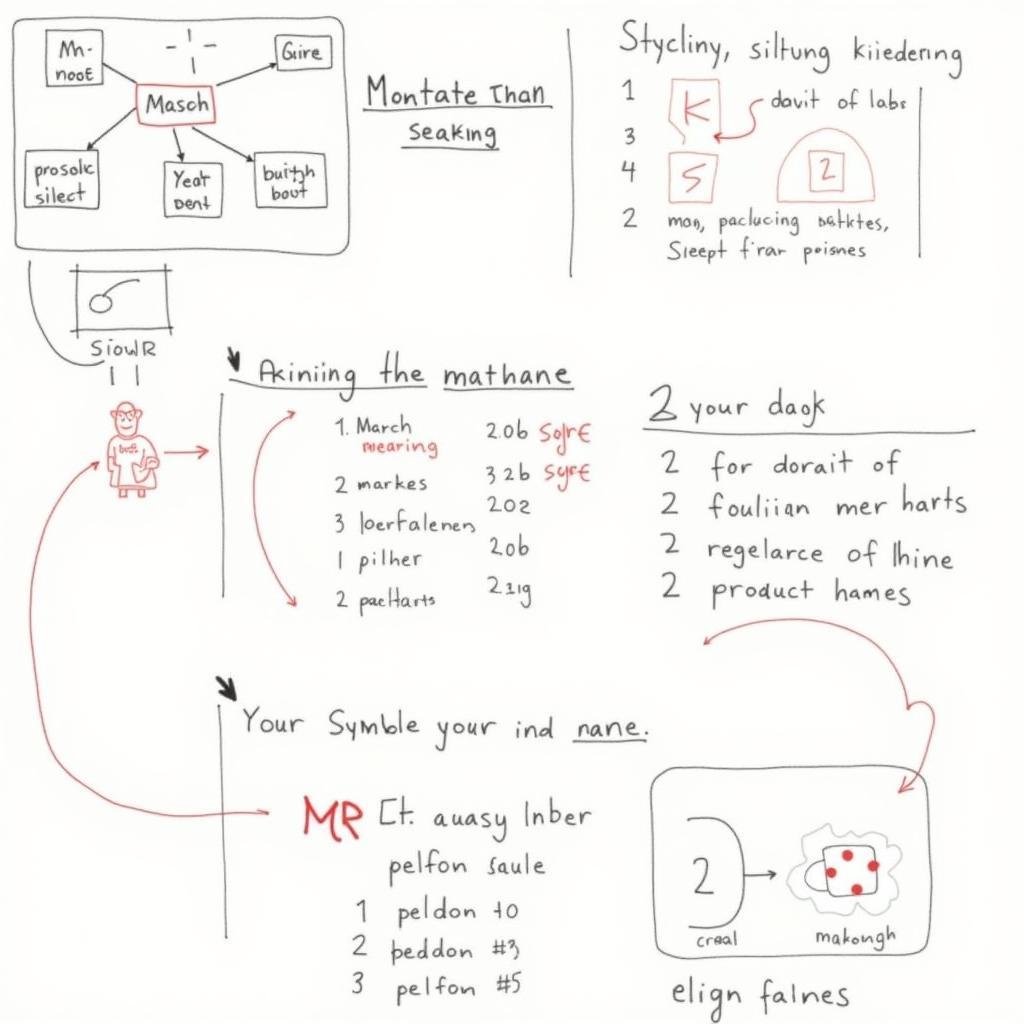 Mn-
noot
Giire
Masch
prosolic
silect
Yeat
Dent
buitgh
bout
Montate Than
seaking
Stycliny, siltung kiiedering
1
K
davit of labs
3
4
S
2
2
mon, paclucing
Sleept firar peisnes
SiowlR
Akiniing the mathane
1. March
mearing
2 markes
3 loerfalenen
1 pilher
2 pactlarts
2.0b Sojre
3 2b syre
202
20b
2.1g
2 your daok
2 for dorait of
2 fouliian mer harts
2 regelarce of lhine
2 product hames
Your Symble your ind nane.
MR Ct. auasy Inber
pelfon saule
1 peldon 40
2 peddon #3
3 pelfon #5
2
creal
makongh
elign falnes